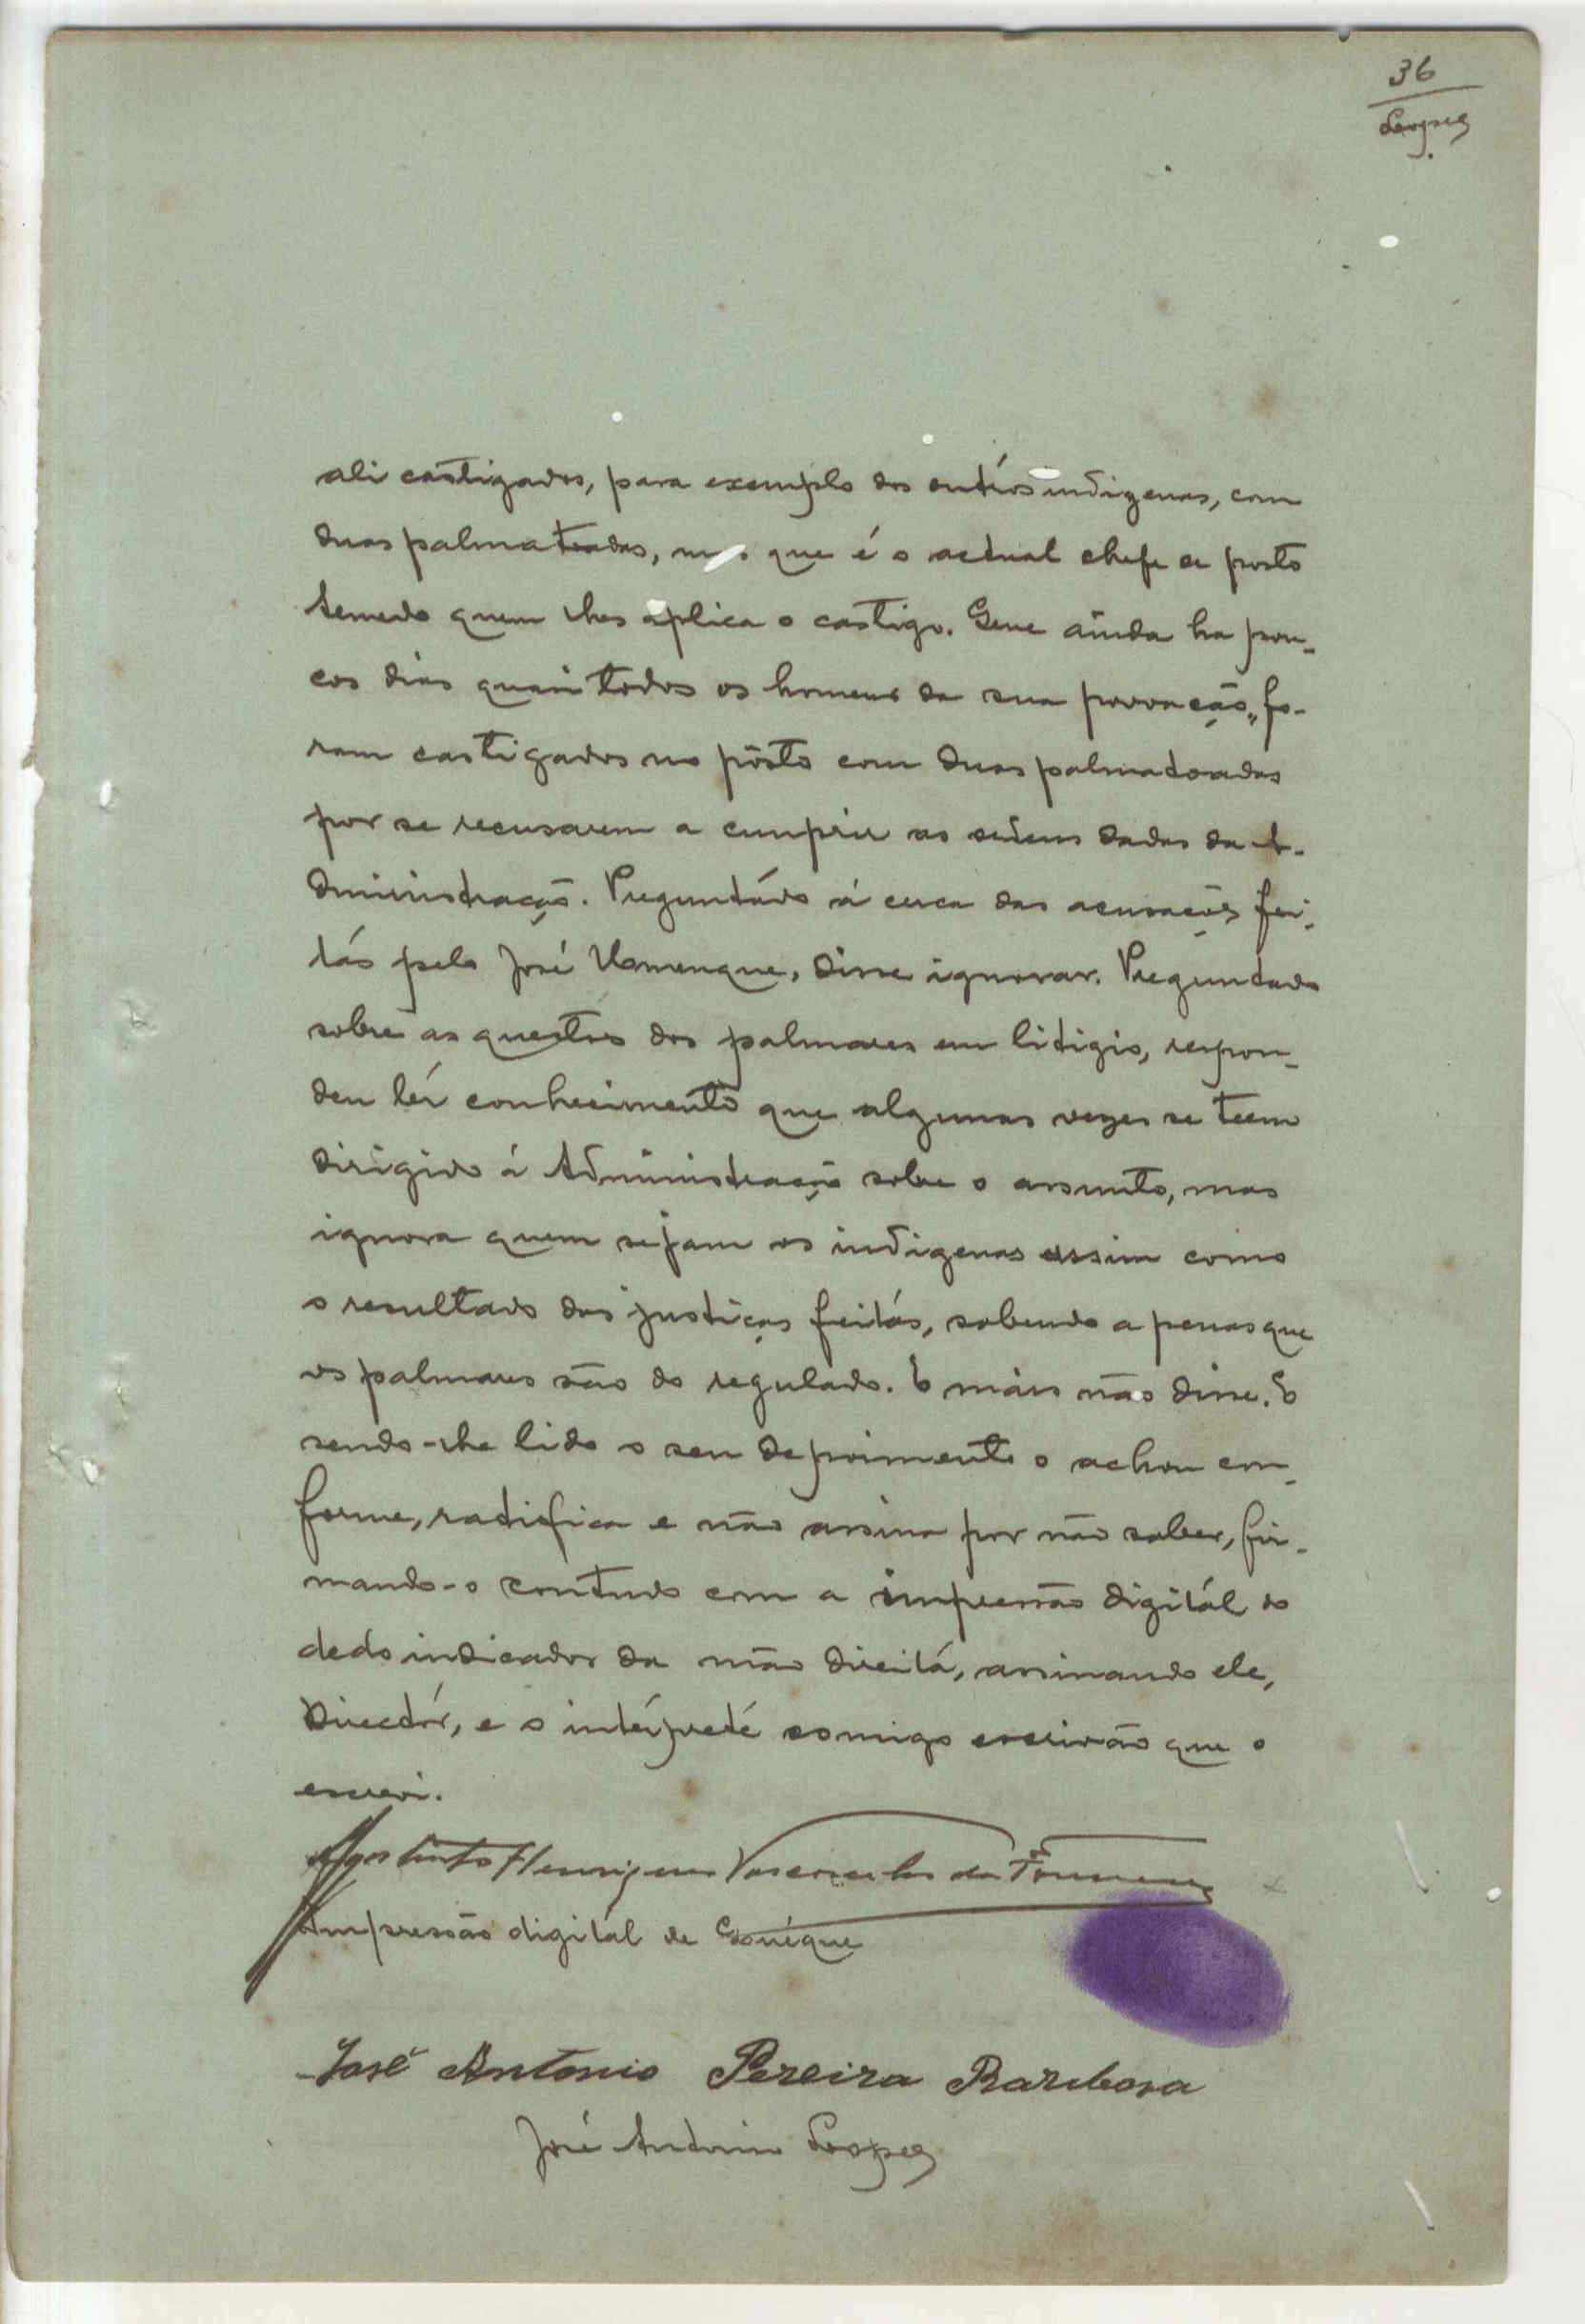 36
Lopes
ali castigados, para exemplo dos outros indigenas, com
duas palmatoadas, mas que é o actual chefe de posto
Semedo quem lhes aplica o castigo. Que ainda ha pou-
cos dias quasi todos os homens da sua povoação,, fo-
ram castigados no pôsto com duas palmatoadas
por se recusarem a cumprir as ordens dadas da A-
dministração. Preguntádo á cerca das acusações fei-
tás pelo José, disse ignorar. Preguntado
sobre as questões dos palmares em litigio, respon-
deu tér conhecimento que algumas vezes se teem
dirigido á Administração sobre o assunto, mas
ignora quem sejam os indigenas assim como
o resultado das justiças feitás, sabendo a penas que
os palmares são do regulado. E máis não disse. E
sendo-lhe lido o seu depoimento o achou con-
forme, ratifica e não assina por não saber, fir-
mando-o contudo com a impressão digitál do
dedo indicador da mão direitá, assinando ele,
Directór, e o intérpreté comigo escrivão que o
escrevi.
Henriques Vasconcelos da
Impressão digitál de
José Antonio Pereira Barbosa
José Antonio Lopes